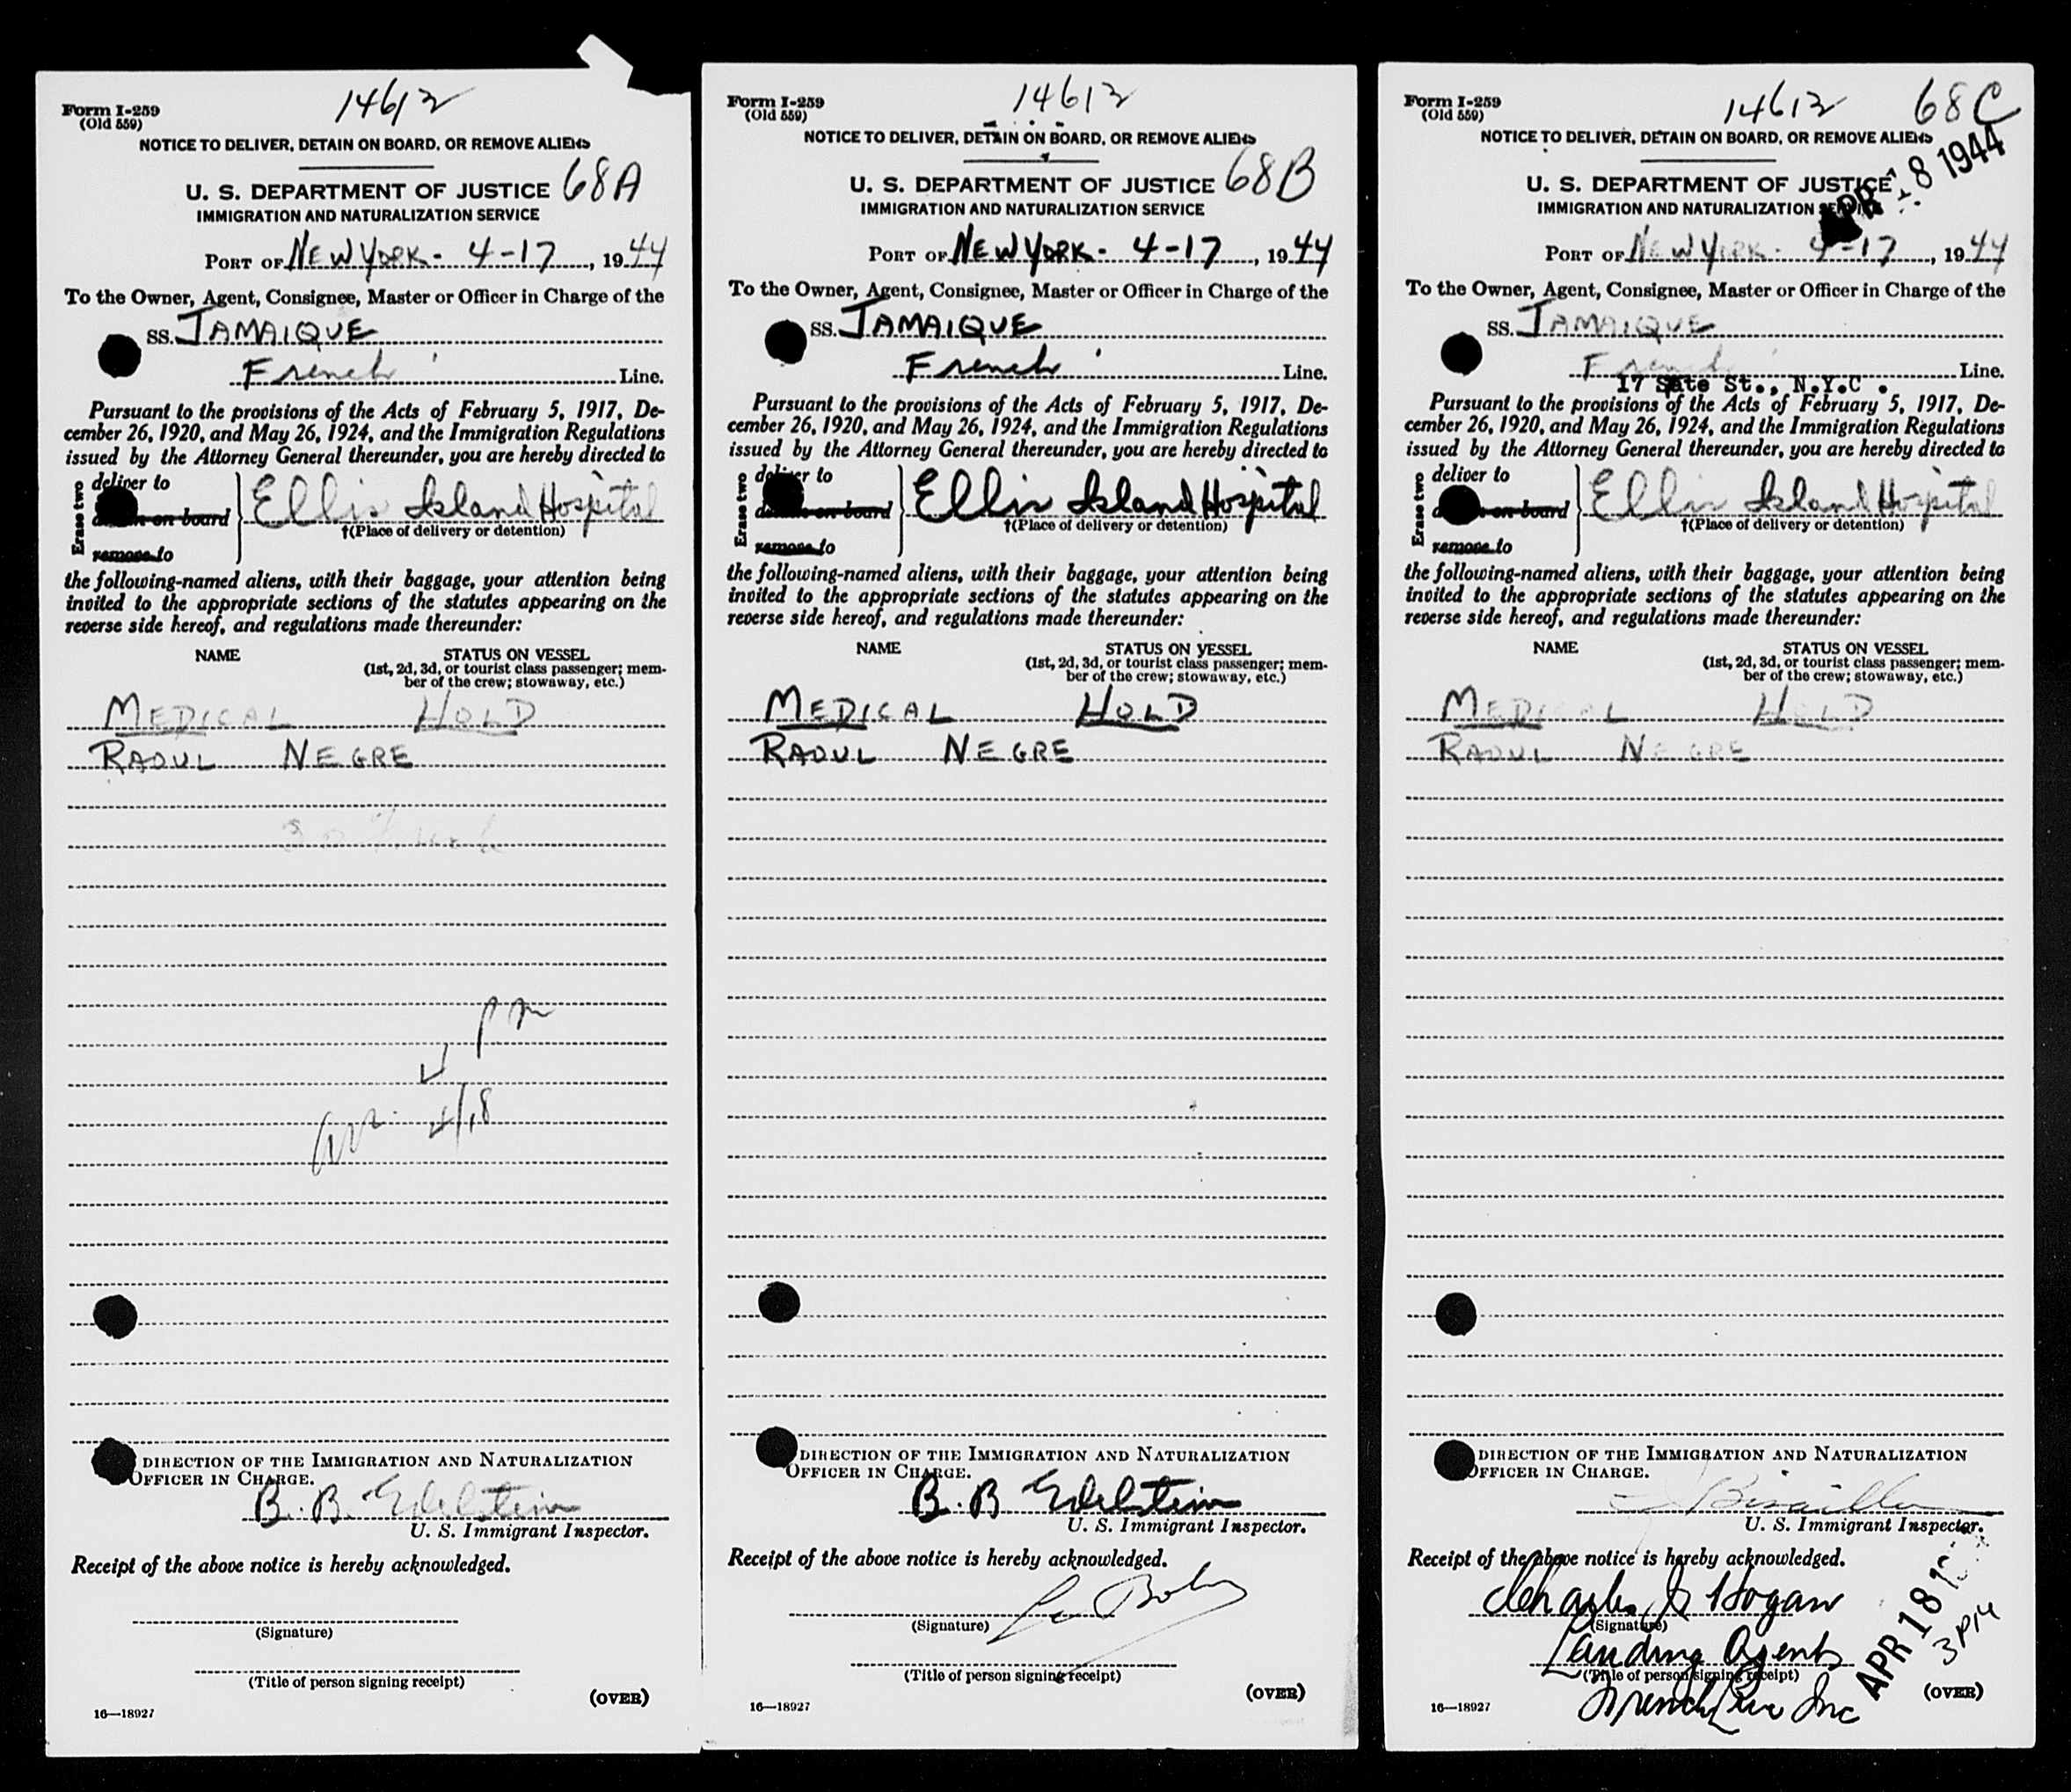 Form I-259
(Old 559)
14612
NOTICE TO DELIVER, DETAIN ON BOARD, OR REMOVE ALIENS
68A
U. S. DEPARTMENT OF JUSTICE
IMMIGRATION AND NATURALIZATION SERVICE
PORT OF NEW YORK - 4-17, 1944
To the Owner, Agent, Consignee, Master or Officer in Charge of the
SS. JAMAIQUE
French Line.
Pursuant to the provisions of the Acts of February 5, 1917, De-
cember 26, 1920, and May 26, 1924, and the Immigration Regulations
issued by the Attorney General thereunder, you are hereby directed to
Erase two
deliver to
on board
remove to
Ellis Island Hospital
†(Place of delivery or detention)
the following-named aliens, with their baggage, your attention being
invited to the appropriate sections of the statutes appearing on the
reverse side hereof, and regulations made thereunder:
NAME STATUS ON VESSEL
(1st, 2d, 3d, or tourist class passenger; mem-
ber of the crew; stowaway, etc.)
MEDICAL HOLD
RAOUL NEGRE
pm
4/18
DIRECTION OF THE IMMIGRATION AND NATURALIZATION
OFFICER IN CHARGE.
B. B. Edelstein
U. S. Immigrant Inspector.
Receipt of the above notice is hereby acknowledged.
(Signature)
(Title of person signing receipt)
(OVER)
16—18927
Form I-259
(Old 559)
14612
NOTICE TO DELIVER, DETAIN ON BOARD, OR REMOVE ALIENS
68B
U. S. DEPARTMENT OF JUSTICE
IMMIGRATION AND NATURALIZATION SERVICE
PORT OF NEW YORK - 4-17, 1944
To the Owner, Agent, Consignee, Master or Officer in Charge of the
SS. JAMAIQUE
French Line.
Pursuant to the provisions of the Acts of February 5, 1917, De-
cember 26, 1920, and May 26, 1924, and the Immigration Regulations
issued by the Attorney General thereunder, you are hereby directed to
Erase two
deliver to
on board
remove to
Ellis Island Hospital
†(Place of delivery or detention)
the following-named aliens, with their baggage, your attention being
invited to the appropriate sections of the statutes appearing on the
reverse side hereof, and regulations made thereunder:
NAME STATUS ON VESSEL
(1st, 2d, 3d, or tourist class passenger; mem-
ber of the crew; stowaway, etc.)
MEDICAL HOLD
RAOUL NEGRE
DIRECTION OF THE IMMIGRATION AND NATURALIZATION
OFFICER IN CHARGE.
B. B Edelstein
U. S. Immigrant Inspector.
Receipt of the above notice is hereby acknowledged.
(Signature)
(Title of person signing receipt)
(OVER)
16—18927
Form I-259
(Old 559)
14612 68C
NOTICE TO DELIVER, DETAIN ON BOARD, OR REMOVE ALIENS
APR 18 1944
U. S. DEPARTMENT OF JUSTICE
IMMIGRATION AND NATURALIZATION SERVICE
PORT OF NEW YORK - 4-17, 1944
To the Owner, Agent, Consignee, Master or Officer in Charge of the
SS. JAMAIQUE
French Line.
17 State St., N.Y.C.
Pursuant to the provisions of the Acts of February 5, 1917, De-
cember 26, 1920, and May 26, 1924, and the Immigration Regulations
issued by the Attorney General thereunder, you are hereby directed to
Erase two
deliver to
on board
remove to
Ellis Island Hospital
†(Place of delivery or detention)
the following-named aliens, with their baggage, your attention being
invited to the appropriate sections of the statutes appearing on the
reverse side hereof, and regulations made thereunder:
NAME STATUS ON VESSEL
(1st, 2d, 3d, or tourist class passenger; mem-
ber of the crew; stowaway, etc.)
MEDICAL HOLD
RAOUL NEGRE
DIRECTION OF THE IMMIGRATION AND NATURALIZATION
OFFICER IN CHARGE.
U. S. Immigrant Inspector.
Receipt of the above notice is hereby acknowledged.
Charles J Hogan
(Signature)
Landing Agent
(Title of person signing receipt)
French Line Inc
APR 18
3 PM
(OVER)
16—18927